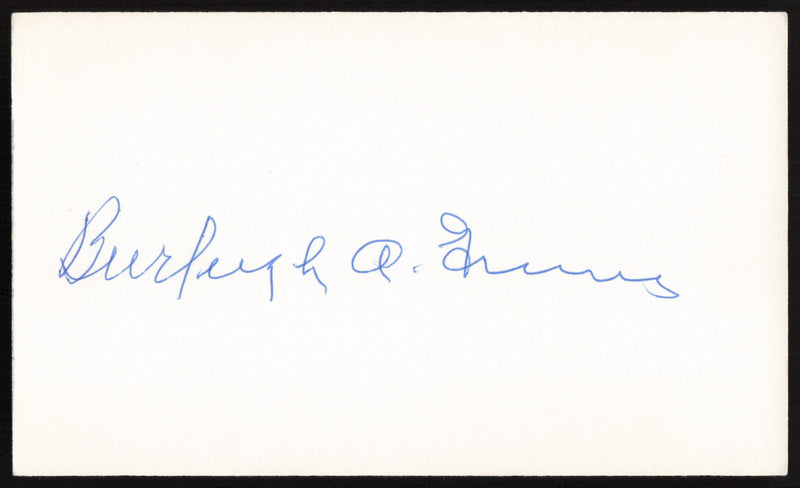 Burleigh A. Grimes